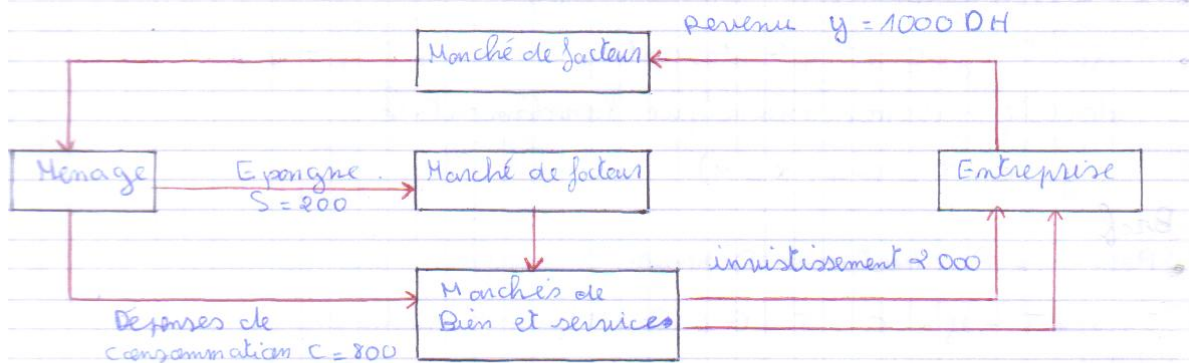 revenu y = 1000 DH
Marché de facteur
Ménage
Epargne
S = 200
Marché de facteur
Entreprise
invistissement 2000
Marchés de
Bien et services
Dépenses de
consommation C = 800